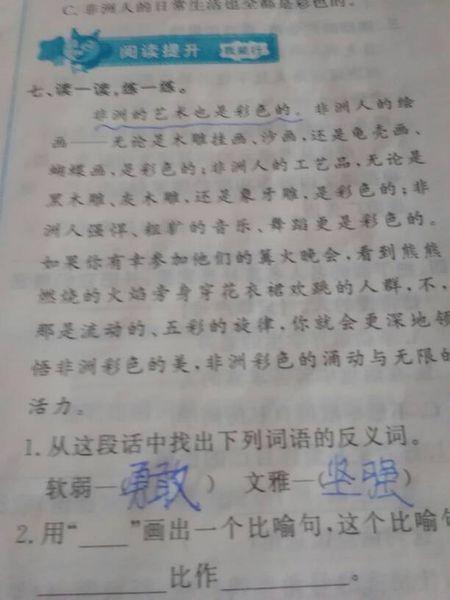 C. 非洲人的日常生活也全都是彩色的。
阅读提升 我能行
七、读一读,练一练。
非洲的艺术也是彩色的。非洲人的绘
画——无论是木雕挂画、沙画,还是龟壳画、
蝴蝶画,是彩色的;非洲人的工艺品,无论是
黑木雕、灰木雕,还是象牙雕,是彩色的;非
洲人强悍、粗犷的音乐、舞蹈更是彩色的。
如果你有幸参加他们的篝火晚会,看到熊熊
燃烧的火焰旁身穿花衣裙欢跳的人群,不,
那是流动的、五彩的旋律,你就会更深地领
悟非洲彩色的美,非洲彩色的涌动与无限的
活力。
1. 从这段话中找出下列词语的反义词。
软弱—(勇敢) 文雅—(坚强)
2. 用“____”画出一个比喻句,这个比喻句
__________比作__________。